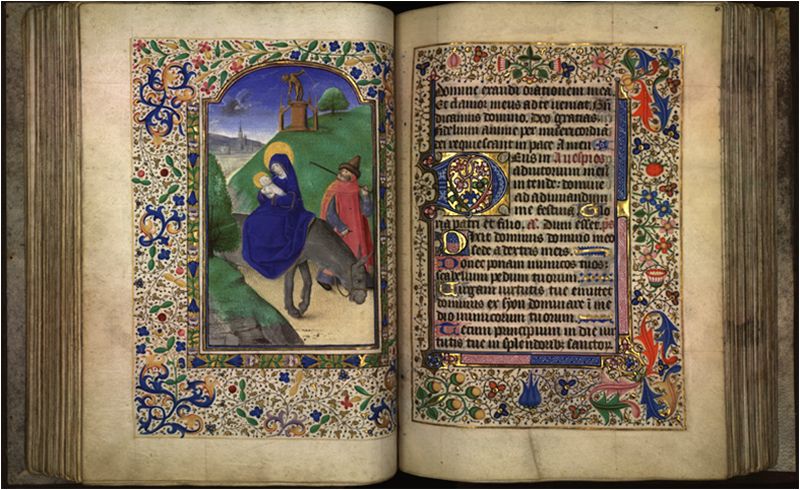 Domine exaudi orationem meã.
Et clamor meus ad te veniat. Bñ
dicamus domino. Deo gratias.
fidelium anime per misericordiã
dei requiescant in pace Amen
Deus in Ad vesperas
adiutorium meũ
intende: domine
ad adiuvandum
me festina Glo
ria patri et filio. Dum esset. ps
Dixit dominus domino meo
sede a dextris meis.
Donec ponam inimicos tuos:
scabellum pedum tuorum
Virgam virtutis tue emittet
dominus ex syon dominare ĩ me
dio inimicorum tuorum.
Tecum principium in die vir
tutis tue in splendoribꝰ sanctoꝝ